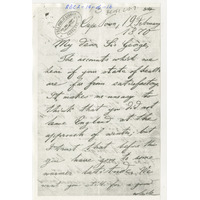 Cape Town, 19 February
1870
My Dear Sir George,
The accounts which we
hear of your state of health
are far from satisfactory.
It makes us uneasy to
think that you did not
leave England at the
approach of winter, but
I trust that before this
you have gone to some
warmer latitudes. We
want you still for a good